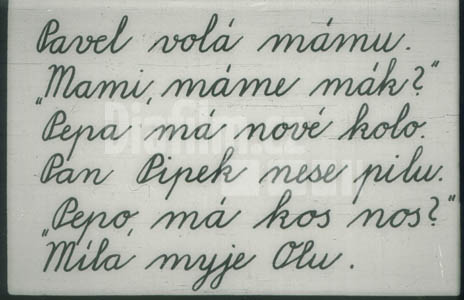 Pavel volá mámu.
„Mami, máme mák?“
Pepa má nové kolo.
Pan Pipek nese pilu.
„Pepo, má kos nos?“
Míla myje Olu.
Diafilm.cz